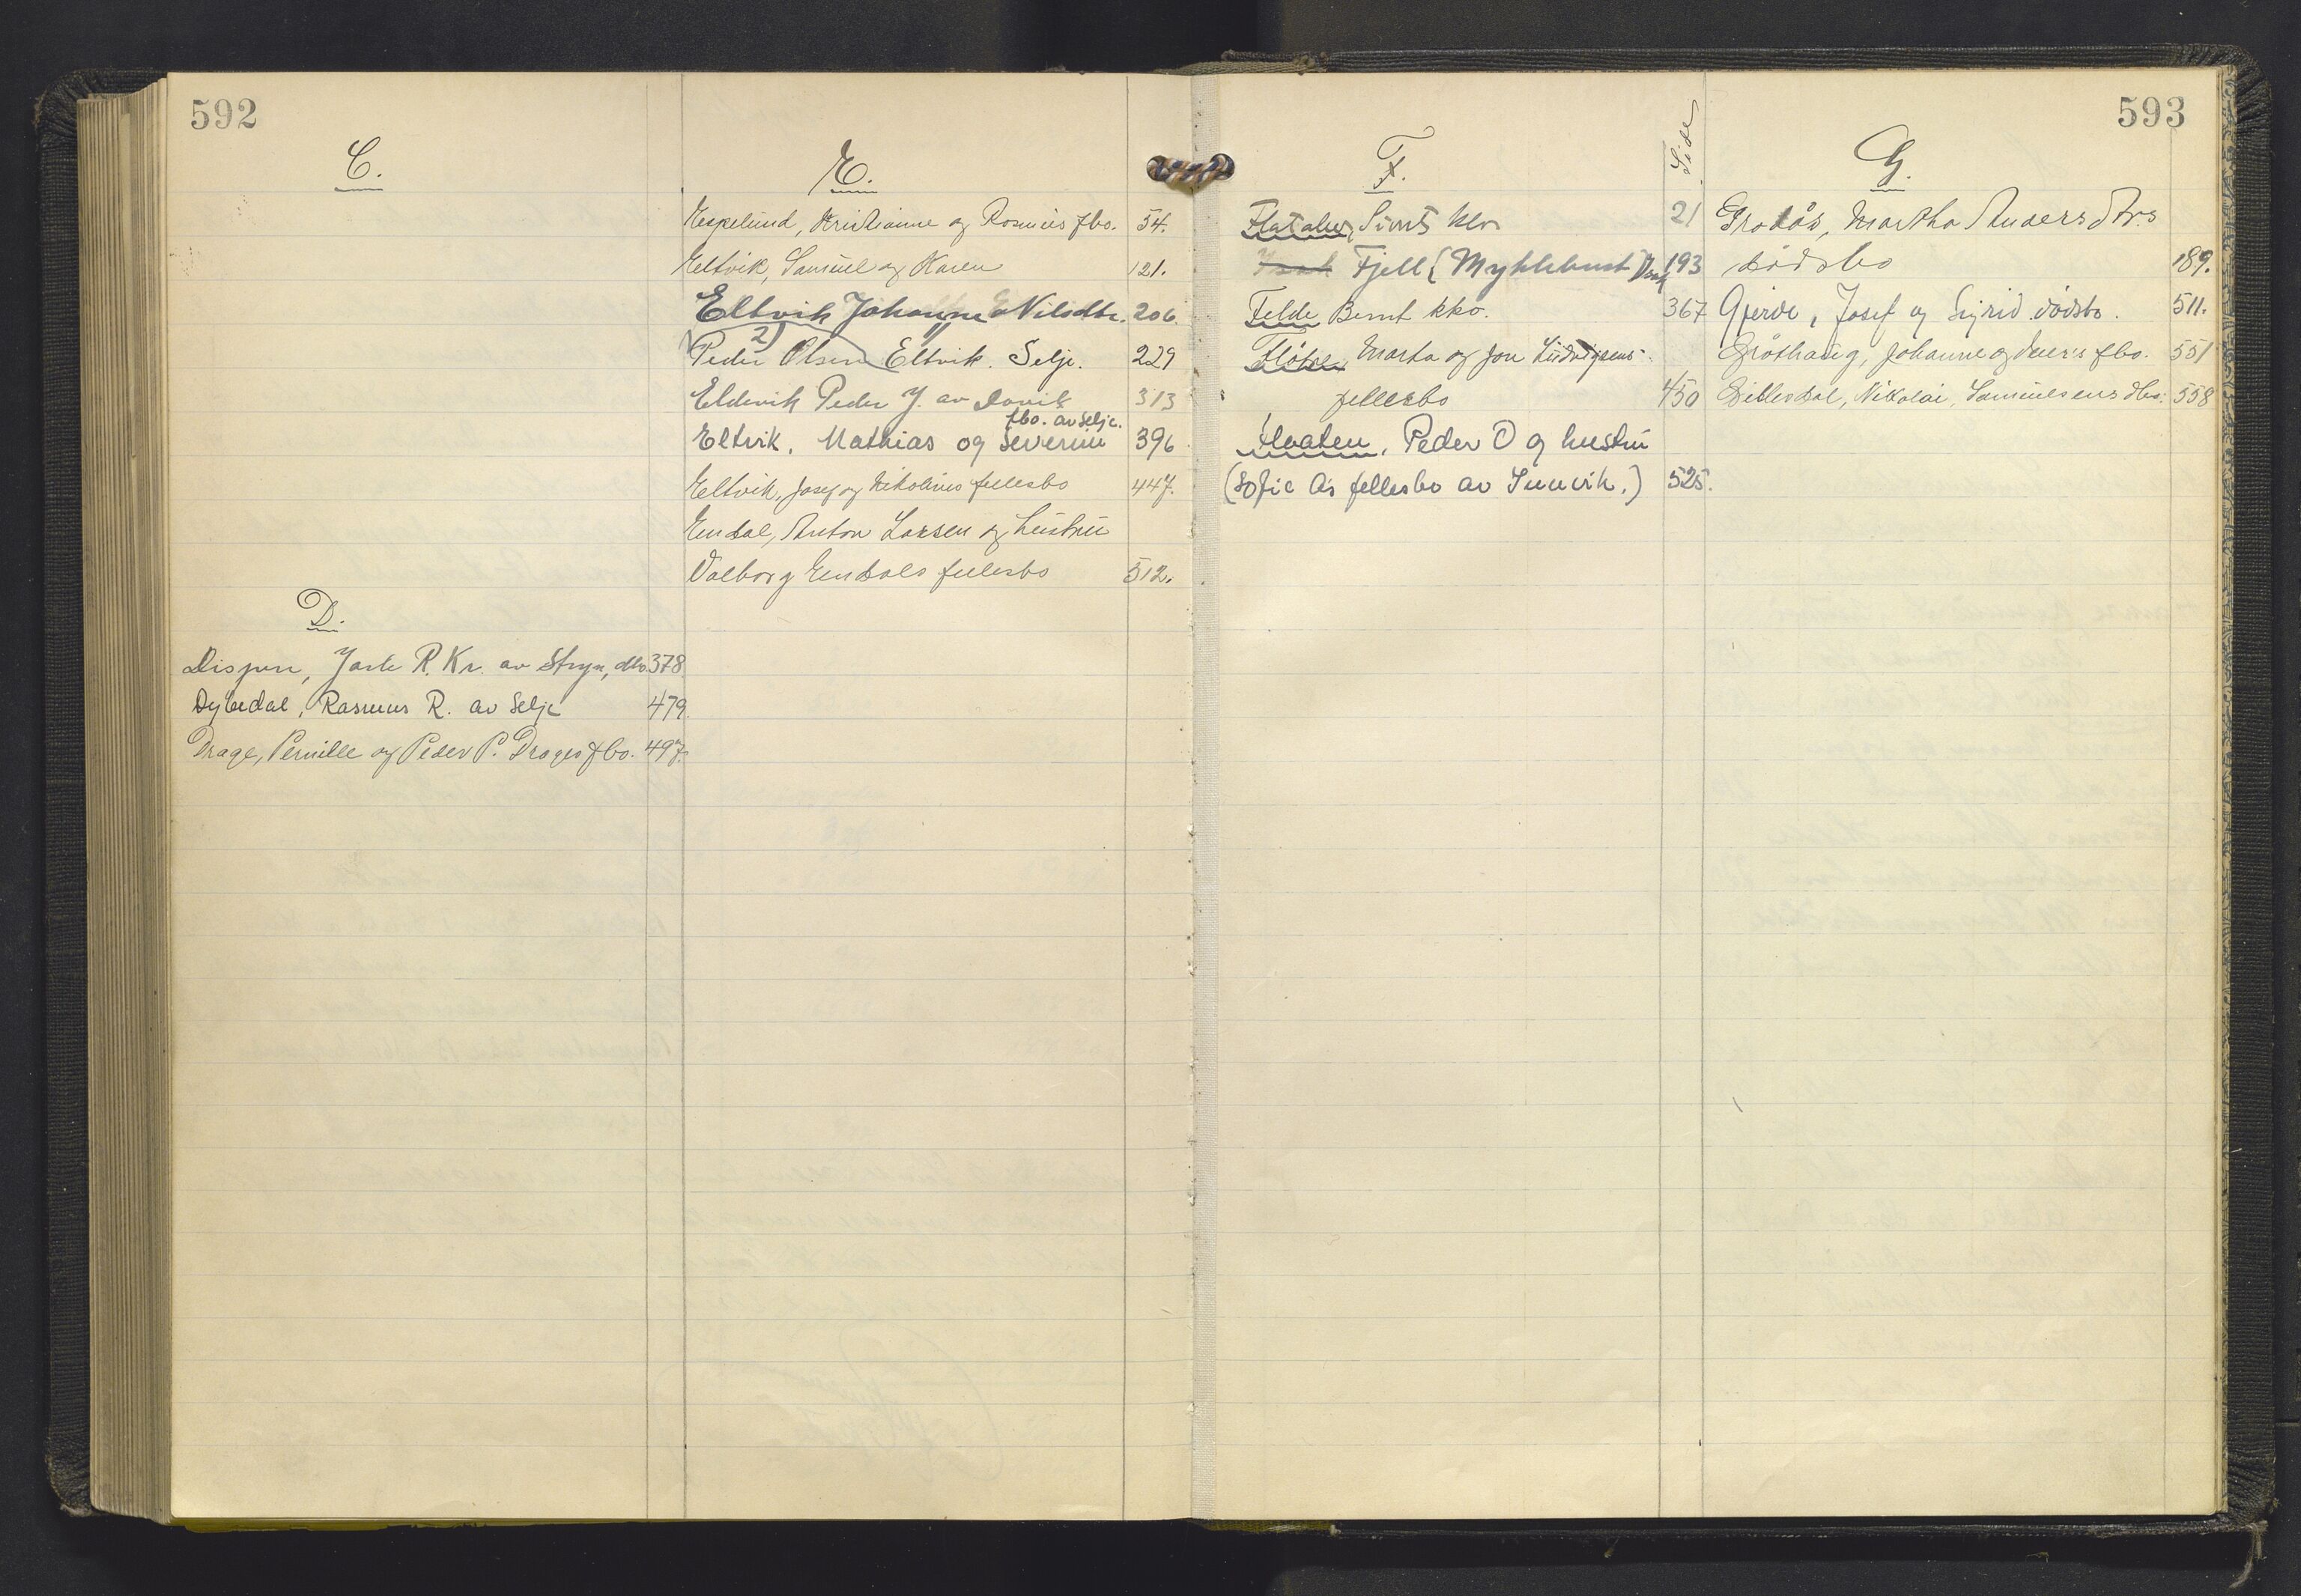 592
C.
D.
Dispen, Jarle R. Kr. av Stryn, dbo 378
Dybedal, Rasmus R. av Selje 479.
Drage, Pernille og Peder P. Drages fbo. 497.
E.
Espelund, Kristianne og Rasmus fbo. 54.
Eltvik, Samuel og Karen 121.
Eltvik Johanne Nilsdtr. 206.
2)
Peder Olsen Eltvik. Selje. 229
Eldevik Peder J. av Davik 313
fbo. av Selje.
Eltvik, Mathias og Severine 396
Eltvik, Josef og Nikolines fellesbo 447.
Endal, Anton Larsen og hustru
Valborg Endals fellesbo 512.
593
F.
Side
Sivert 21
Fjell (Myklebust) 193
Felde Bernt kko. 367
Marta og Jon Ludvigsens
fellesbo 450
Floten, Peder O og hustru
(Sofie A's fellesbo av Innvik.) 525.
G.
Grodås, Martha Andersdtrs
dødsbo 189.
Gjerde, Josef og Sigrid dødsbo. 511.
Grøthaug, Johanne og fbo. 551
Nikolai Samuelsens dbo. 558